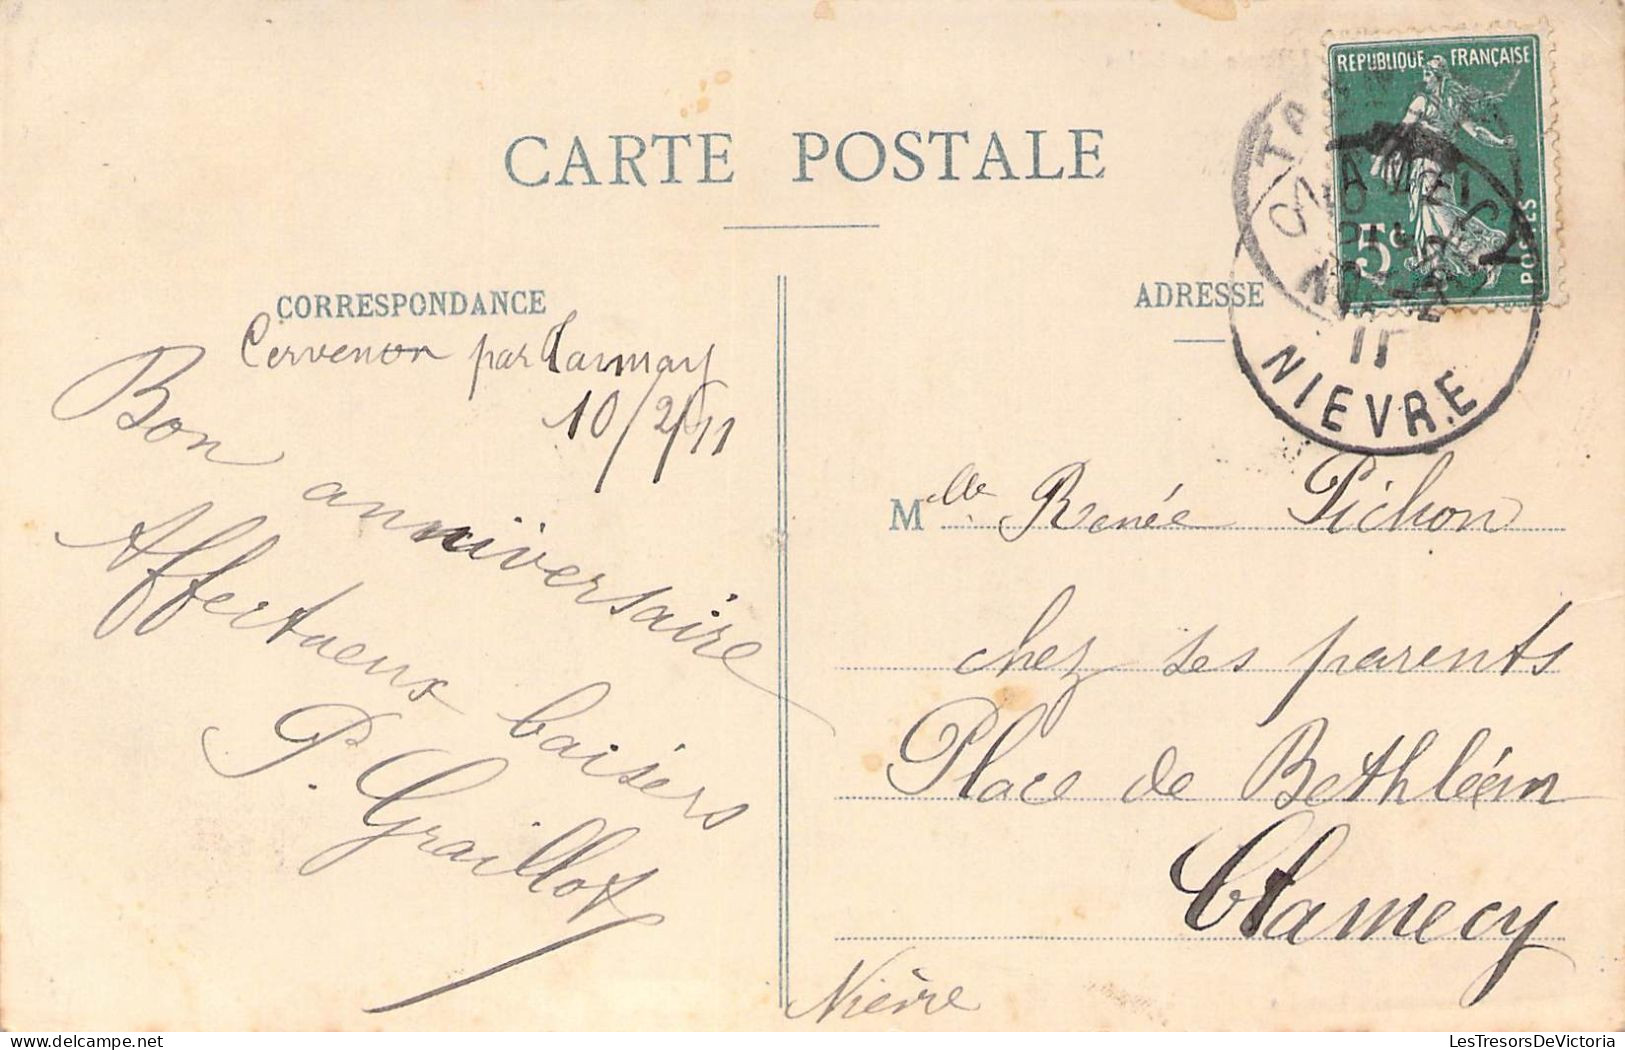 CARTE POSTALE
CORRESPONDANCE
Cervenon par Tannay
10/2/11
Bon anniversaire
Affectueux baisers
P. Graillot
ADRESSE
REPUBLIQUE FRANÇAISE
5c
POSTES
CLAMECY
11
NIEVRE
Mlle Renée Pichon
chez ses parents
Place de Bethléem
Clamecy
Nièvre
LesTresorsDeVictoria